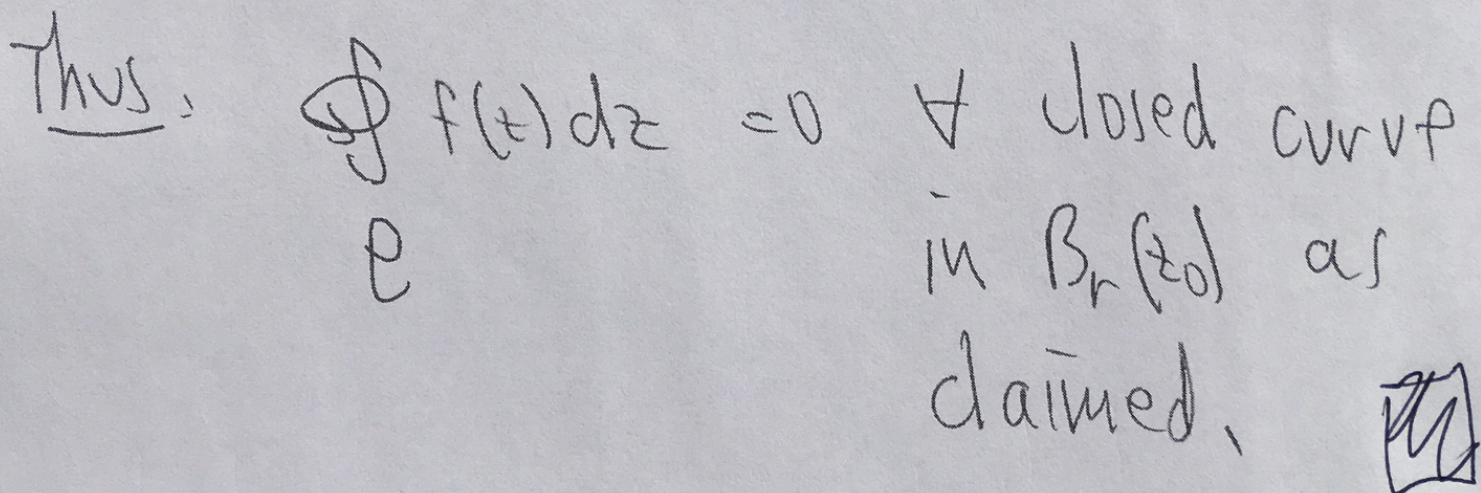 Thus, ∮ f(z) dz = 0 ∀ closed curve
e in Br(z0) as
claimed.